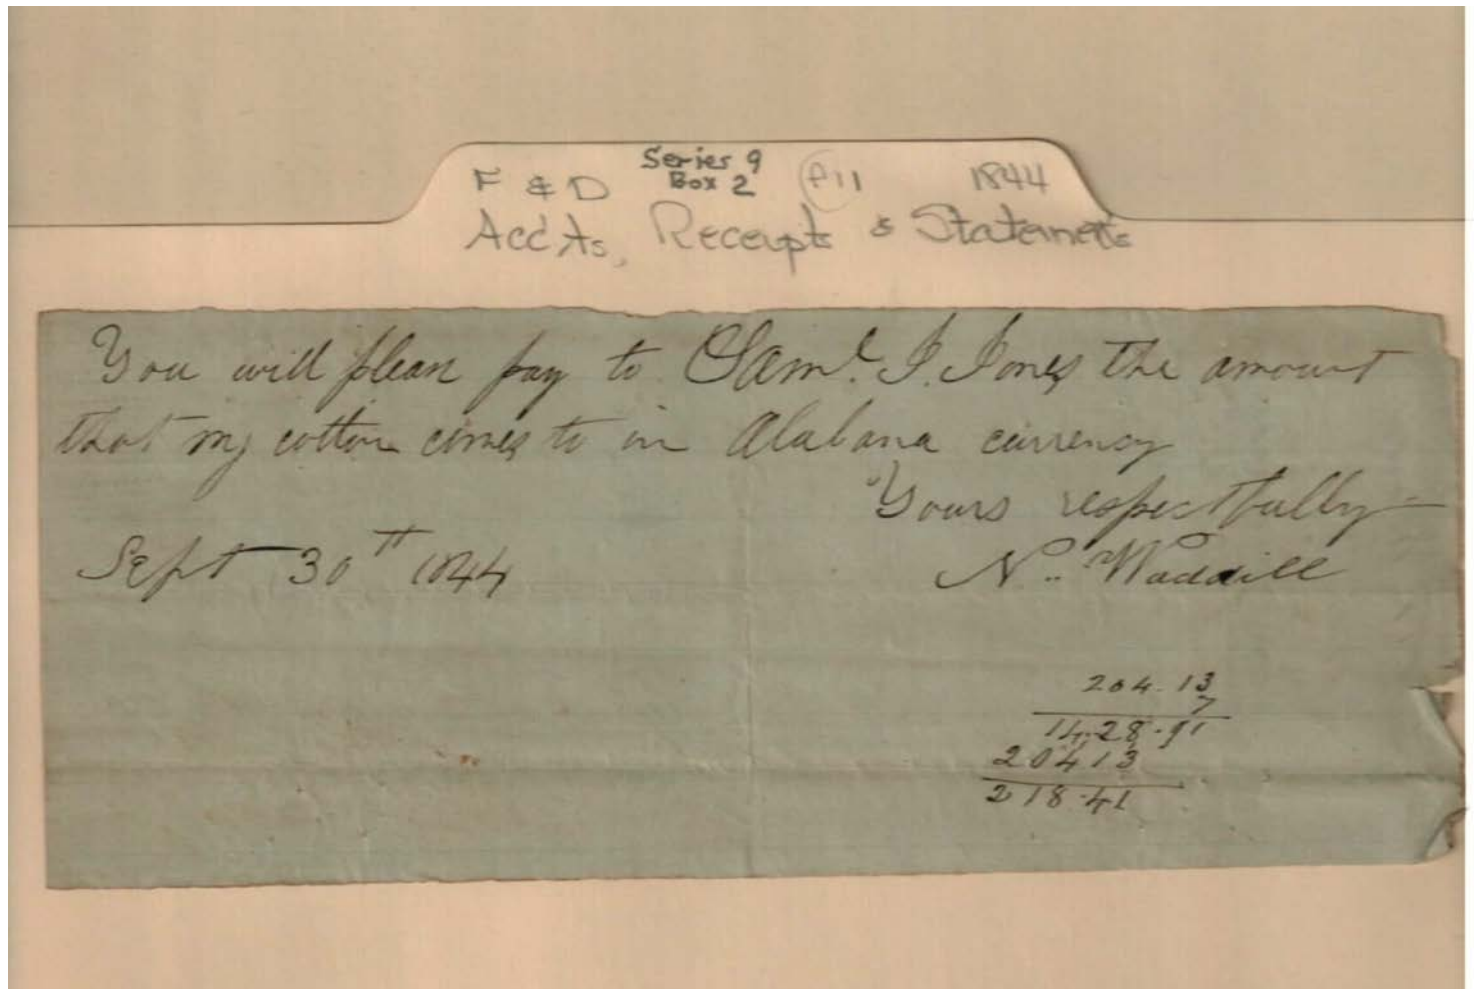 Series 9
F & D Box 2 P11 1844
Acc'ts, Receipts & Statements
You will please pay to Saml. J. Jones the amount
that my cotton comes to in Alabama currency
Yours respectfully
Sept 30th 1844 N. Waddill
204.13
7
14.28.91
20413
218.41